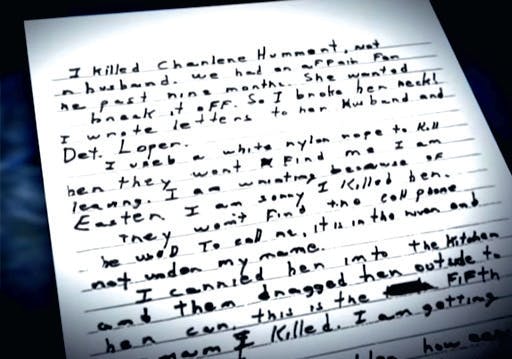 I killed Charlene Hummert, not
husband. we had an affair for
he past nine months. She wanted
break it off. So I broke her neck!
I wrote letters to her Husband and
Det. Loper.
I used a white nylon rope to Kill
her they wont Find me I am
leaving. I am writing because of
Easter. I am sorry I Killed her.
They won't Find the cell phone
he used To call me, it is in the river and
not under my name.
I carried her into the kitchen
and them dragged her outside to
her car. this is the FiFth
I Killed. I am getting
how easy